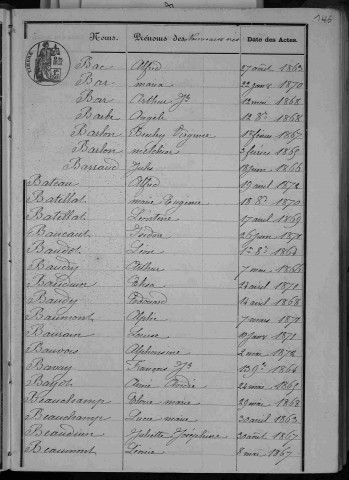 146
Noms. Prénoms des Nouveaux nés Date des Actes.
Bac Alfred 27 août 1863
Bar maria 22 janv 1870
Bar Arthur Jh 12 mai 1868
Barbe Angèle 12 8bre 1868
Barlon Emiley Virginie 15 févr 1867
Barlon melchior 3 févrie 1869
Barraud Jules 18 juin 1866
Bateau Alfred 19 avril 1872
Batillat marie Eugénie 18 8bre 1870
Batillat Léontine 17 avril 1869
Baucaut Isidore 26 juin 1870
Baudot Léon 1er 8bre 1864
Baudry Arthur 7 mai 1866
Baudouin Elisa 24 avril 1871
Baudy Edouard 14 avril 1868
Baumont 7 mars 1872
Baurain Louise 10 janv 1871
Bauvois Alphonsine 2 mai 1872
Bawuy François Jh 13 9bre 1864
Bayot Anne 24 mai 1865
Beauchamp marie 29 mai 1862
Beauchamp Lucie marie 30 avril 1863
Beaudoin Juliette Joséphine 30 août 1867
Beaumont Léonie 8 mai 1867